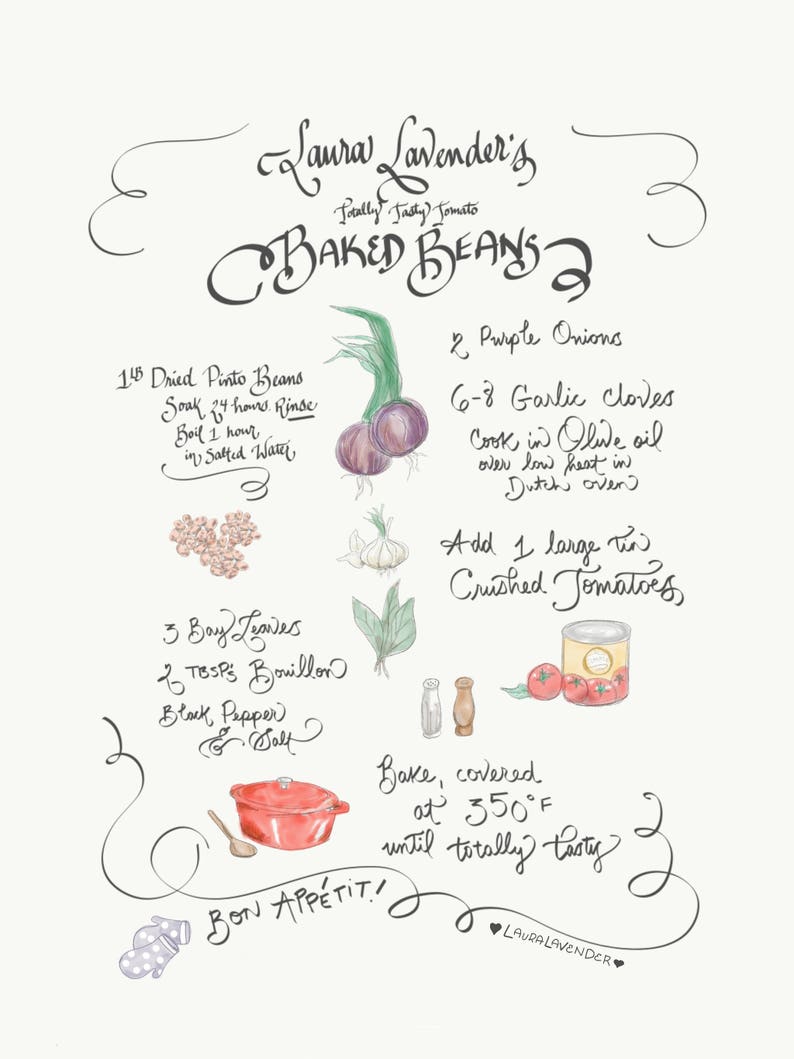 Laura Lavender's
Totally Tasty Tomato
BAKED BEANS
1 LB Dried Pinto Beans
Soak 24 hours. Rinse
Boil 1 hour
in Salted Water
2 Purple Onions
6-8 Garlic cloves
Cook in Olive oil
over low heat in
Dutch oven
Add 1 large tin
Crushed Tomatoes
3 Bay Leaves
2 TBSP's Bouillon
Black Pepper
& Salt
Bake, covered
at 350°F
until totally tasty
BON APPÉTIT!
♥LAURALAVENDER♥